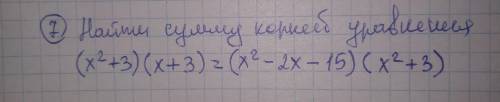 ⑦ Найти сумму корней уравнения
(x²+3)(x+3)=(x²-2x-15)(x²+3)